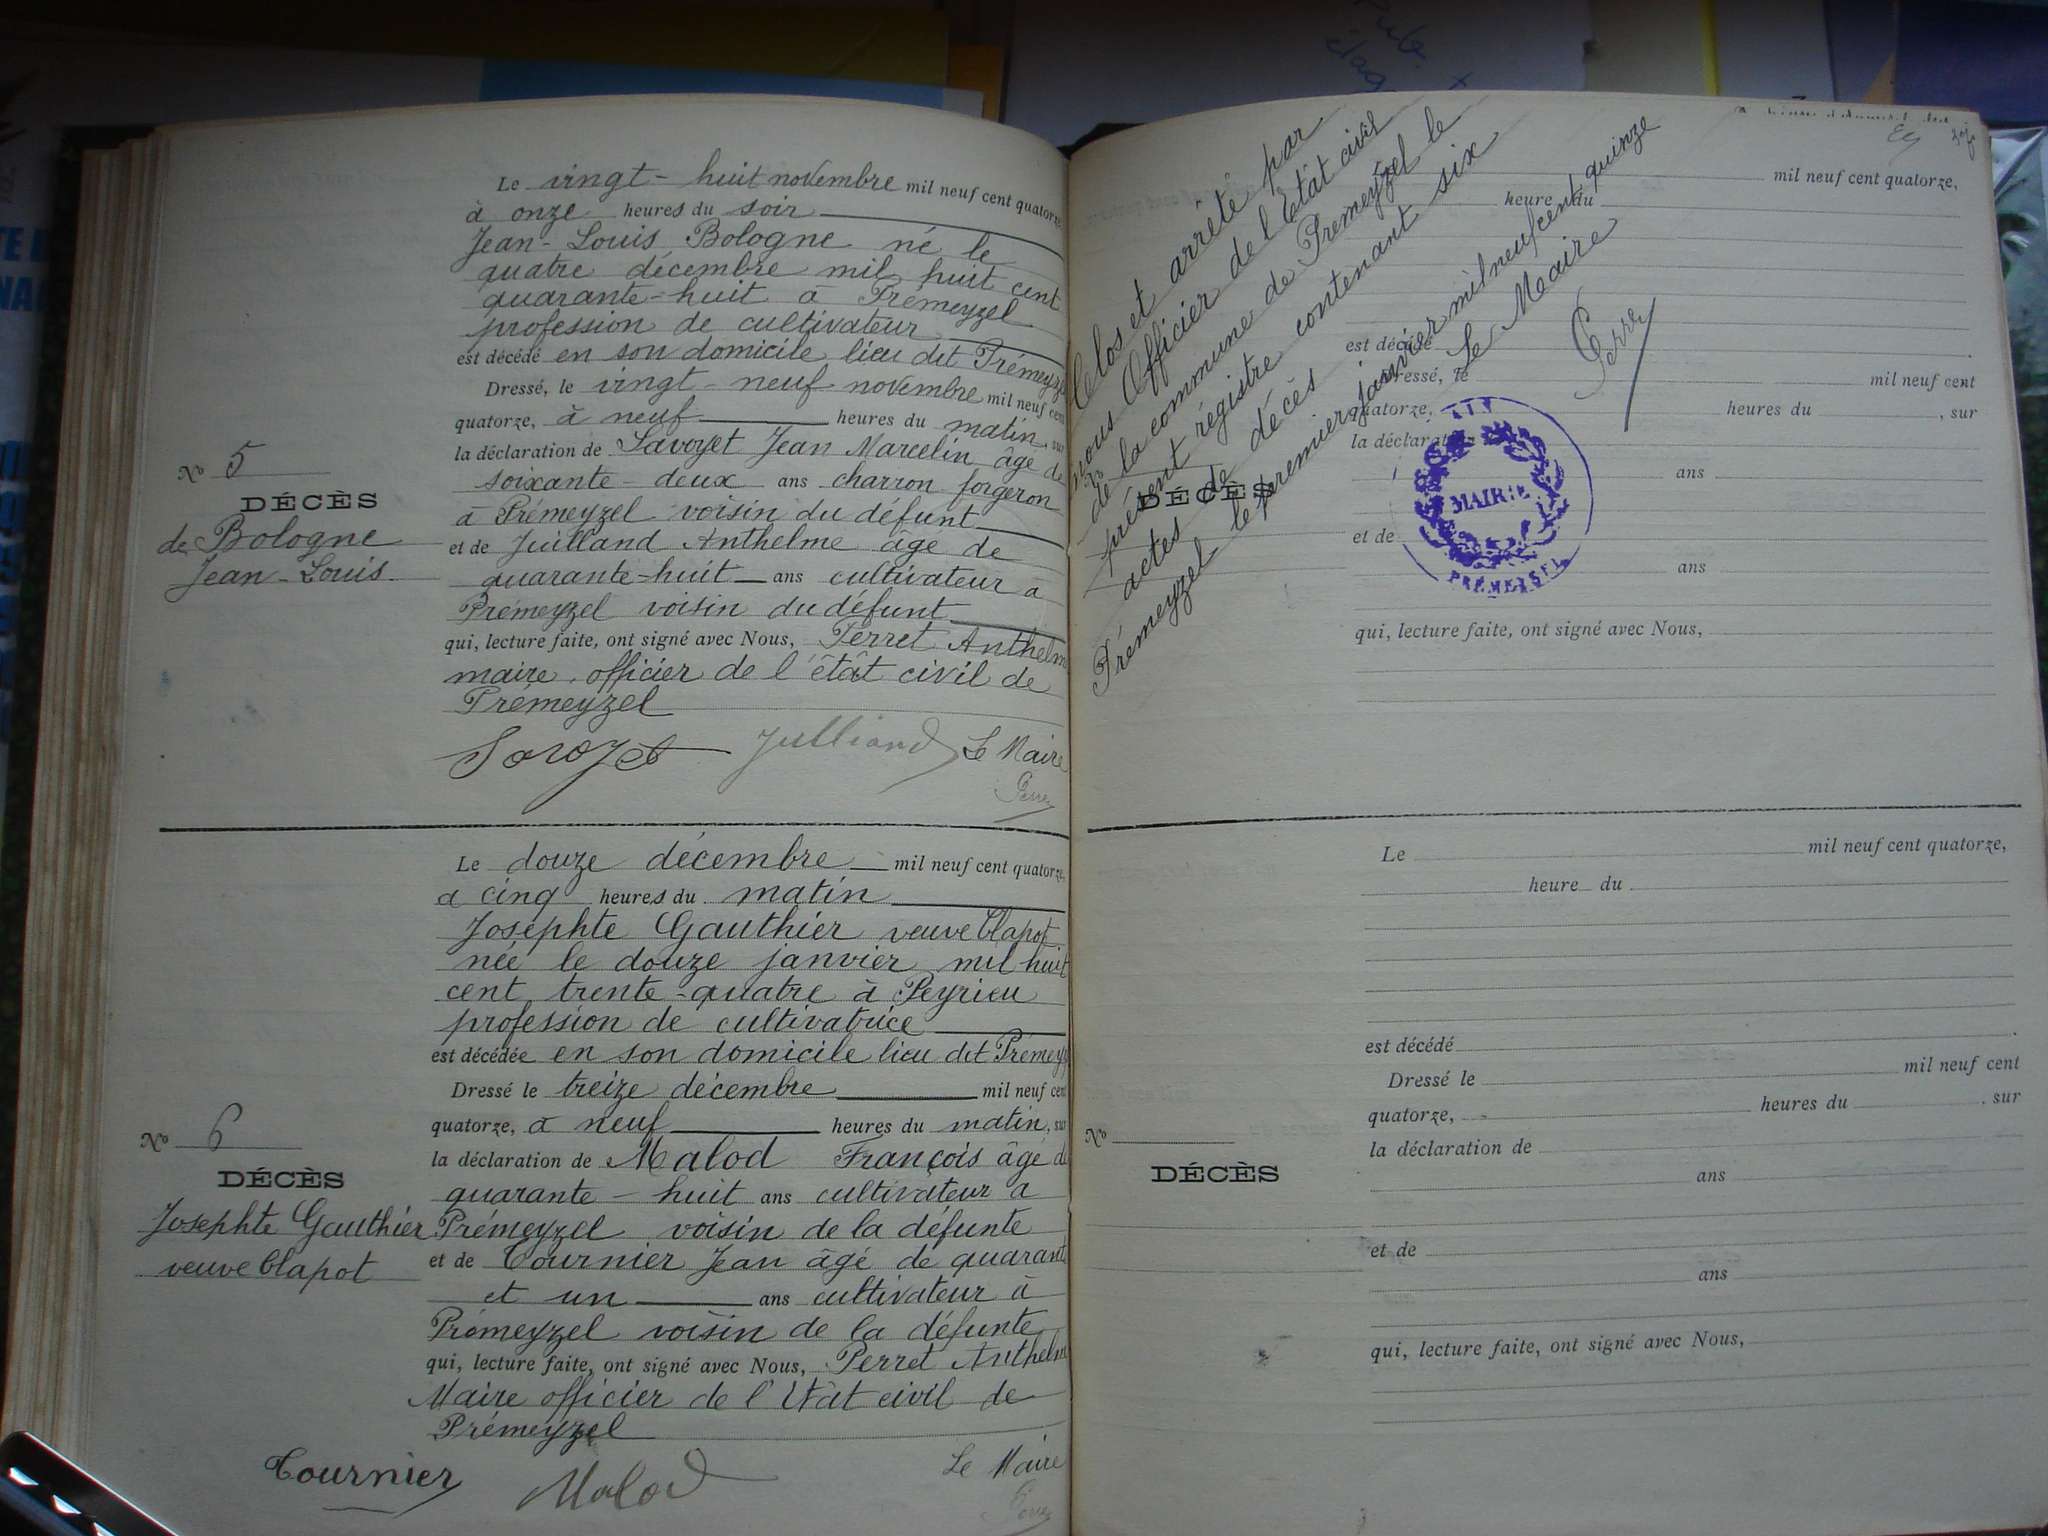 Le vingt-huit novembre mil neuf cent quatorze
à onze heures du soir
Jean-Louis Bologne né le
quatre décembre mil huit cent
quarante-huit à Prémeyzel
profession de cultivateur
est décédé en son domicile lieu dit Prémeyzel
Dressé, le vingt-neuf novembre mil neuf cent
quatorze, à neuf heures du matin, sur
la déclaration de Savoyet Jean Marcelin âgé de
soixante-deux ans charron forgeron
à Prémeyzel voisin du défunt
et de Juilland Anthelme âgé de
quarante-huit ans cultivateur à
Prémeyzel voisin du défunt
qui, lecture faite, ont signé avec Nous, Perret Anthelm
maire, officier de l'êtât civil de
Prémeyzel
Le Maire
No 5
DÉCÈS
de Bologne
Jean-Louis
Le douze décembre mil neuf cent quatorze,
à cinq heures du matin
Josephte Gauthier veuve Clapot
née le douze janvier mil huit
cent trente-quatre à Peyrieu
profession de cultivatrice
est décédée en son domicile lieu dit Prémeyz
Dressé le treize décembre mil neuf cent
quatorze, à neuf heures du matin, sur
la déclaration de Malod François âgé de
quarante-huit ans cultivateur à
Prémeyzel voisin de la défunte
et de Tournier Jean âgé de quarante
et un ans cultivateur à
Prémeyzel voisin de la défunte
qui, lecture faite, ont signé avec Nous, Perret Anthelm
Maire officier de l'Etât civil de
Prémeyzel
Tournier Malod Le Maire
No 6
DÉCÈS
Josephte Gauthier
veuve Clapot
Clos et arrêté par
nous Officier de l'Etât civil
de la commune de Prémeyzel le
présent régistre contenant six
actes de décès
Prémeyzel le premier janvier mil neuf cent quinze
Le Maire
mil neuf cent quatorze,
heure du
est décédé
Dressé, le mil neuf cent
quatorze, heures du , sur
la déclaration
ans
et de
ans
qui, lecture faite, ont signé avec Nous,
DÉCÈS
AIN
MAIRIE
PRÉMEYSEL
Le mil neuf cent quatorze,
heure du
est décédé
Dressé le mil neuf cent
quatorze, heures du , sur
la déclaration de
ans
et de
ans
qui, lecture faite, ont signé avec Nous,
No
DÉCÈS